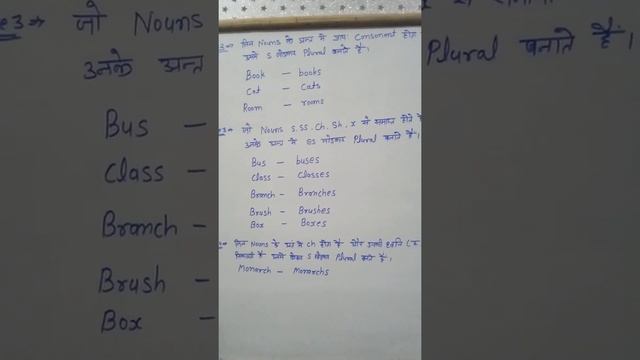 जिन Nouns के अन्त में प्रायः Consonant होता
उनमें S जोड़कर Plural बनाते हैं।
Book – books
Cat – Cats
Room – rooms
जो Nouns S. SS. Ch. Sh. x से समाप्त होते हैं
उनके अन्त में es जोड़कर Plural बनाते हैं।
Bus – buses
Class – Classes
Branch – Branches
Brush – Brushes
Box – Boxes
जिन Nouns के अन्त में ch होता है और उनकी ध्वनि
निकलती है उनमें केवल S जोड़कर Plural बनाते हैं।
Monarch – Monarchs